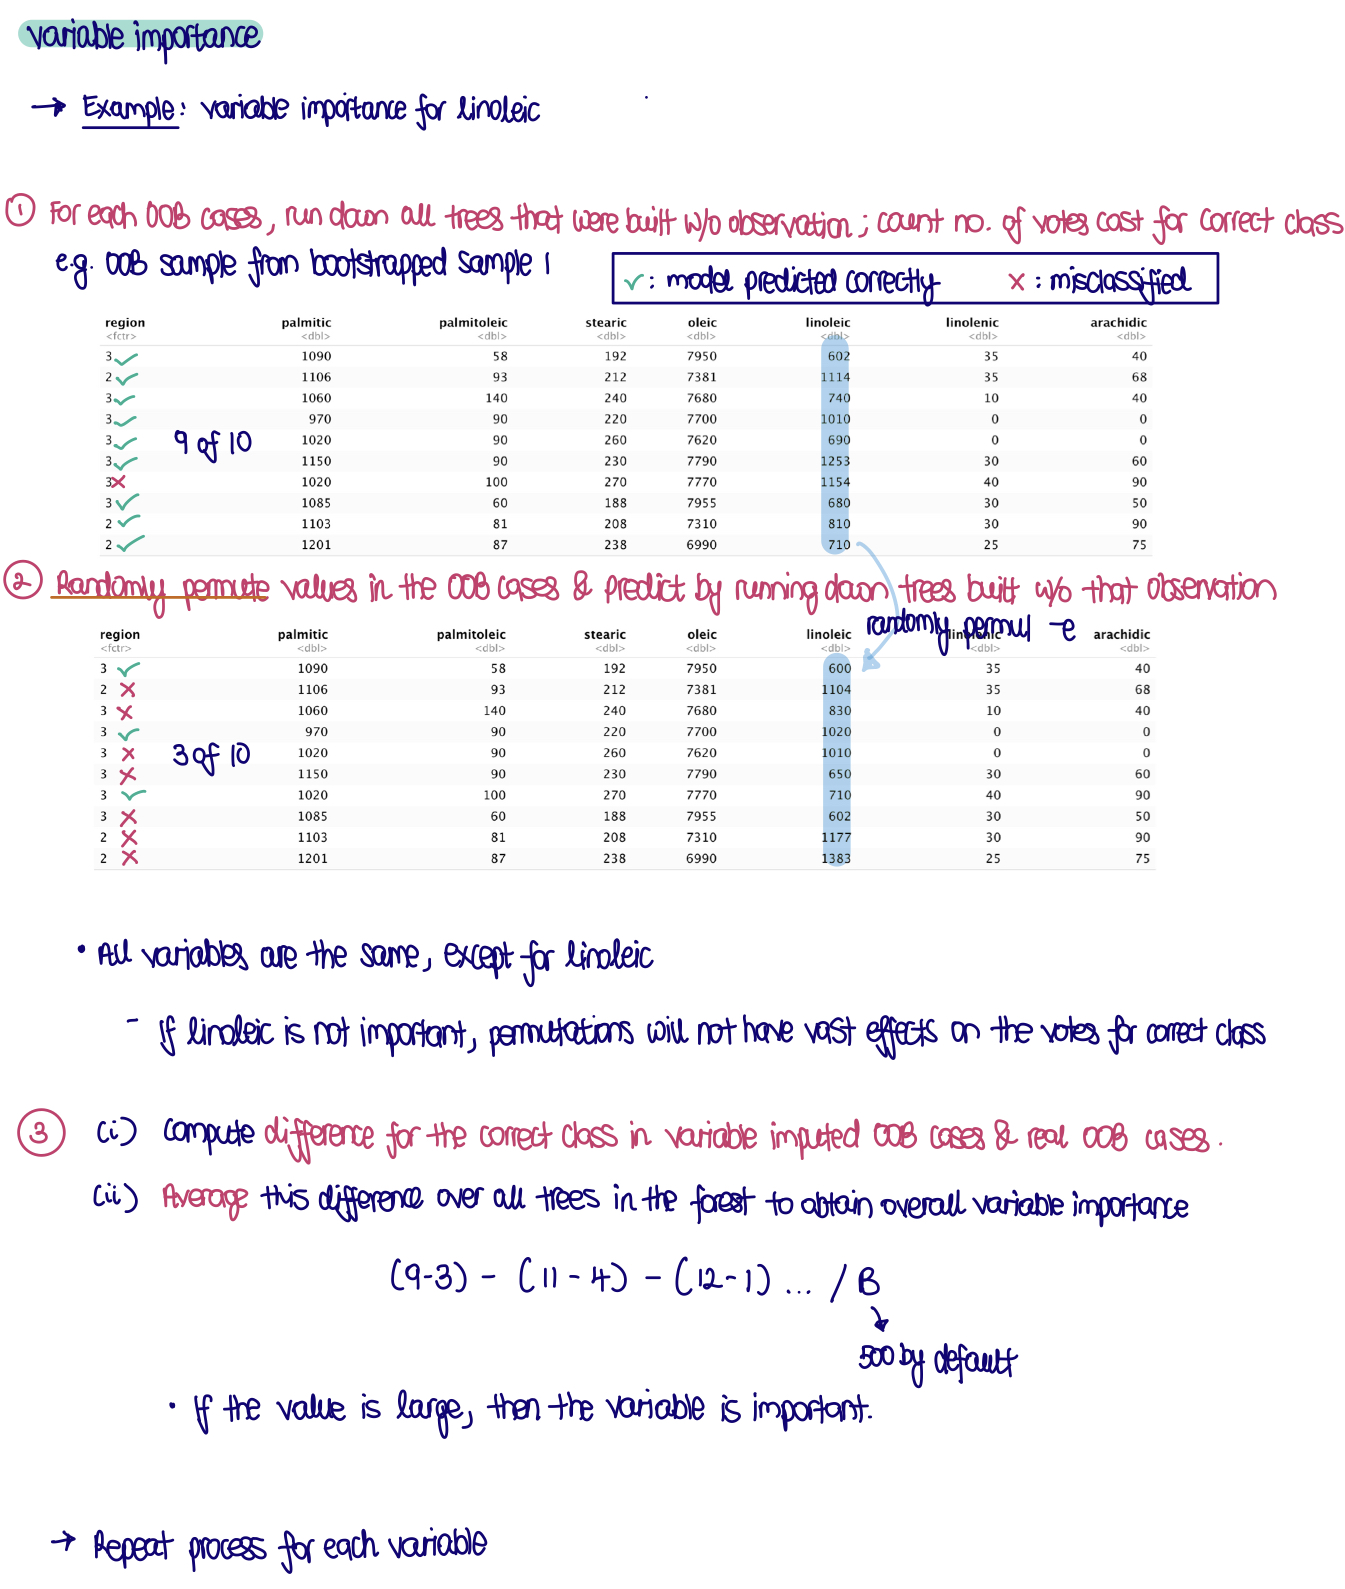 variable importance
→ Example: variable importance for linoleic
① For each OOB cases, run down all trees that were built w/o observation; count no. of votes cast for correct class
e.g. OOB sample from bootstrapped sample 1
✓: model predicted correctly ✗: misclassified
region palmitic palmitoleic stearic oleic linoleic linolenic arachidic
<fctr> <dbl> <dbl> <dbl> <dbl> <dbl> <dbl> <dbl>
3 ✓ 1090 58 192 7950 602 35 40
2 ✓ 1106 93 212 7381 1114 35 68
3 ✓ 1060 140 240 7680 740 10 40
3 ✓ 970 90 220 7700 1010 0 0
3 ✓ 1020 90 260 7620 690 0 0
9 of 10
3 ✓ 1150 90 230 7790 1253 30 60
3 ✗ 1020 100 270 7770 1154 40 90
3 ✓ 1085 60 188 7955 680 30 50
2 ✓ 1103 81 208 7310 810 30 90
2 ✓ 1201 87 238 6990 710 25 75
② Randomly permute values in the OOB cases & predict by running down trees built w/o that observation
randomly permut -e
region palmitic palmitoleic stearic oleic linoleic linolenic arachidic
<fctr> <dbl> <dbl> <dbl> <dbl> <dbl> <dbl> <dbl>
3 ✓ 1090 58 192 7950 600 35 40
2 ✗ 1106 93 212 7381 1104 35 68
3 ✗ 1060 140 240 7680 830 10 40
3 ✓ 970 90 220 7700 1020 0 0
3 ✗ 1020 90 260 7620 1010 0 0
3 of 10
3 ✗ 1150 90 230 7790 650 30 60
3 ✓ 1020 100 270 7770 710 40 90
3 ✗ 1085 60 188 7955 602 30 50
2 ✗ 1103 81 208 7310 1177 30 90
2 ✗ 1201 87 238 6990 1383 25 75
• All variables are the same, except for linoleic
- If linoleic is not important, permutations will not have vast effects on the votes for correct class
③ (i) Compute difference for the correct class in variable imputed OOB cases & real OOB cases.
(ii) Average this difference over all trees in the forest to obtain overall variable importance
(9-3) - (11-4) - (12-1) ... / B
500 by default
• If the value is large, then the variable is important.
→ Repeat process for each variable